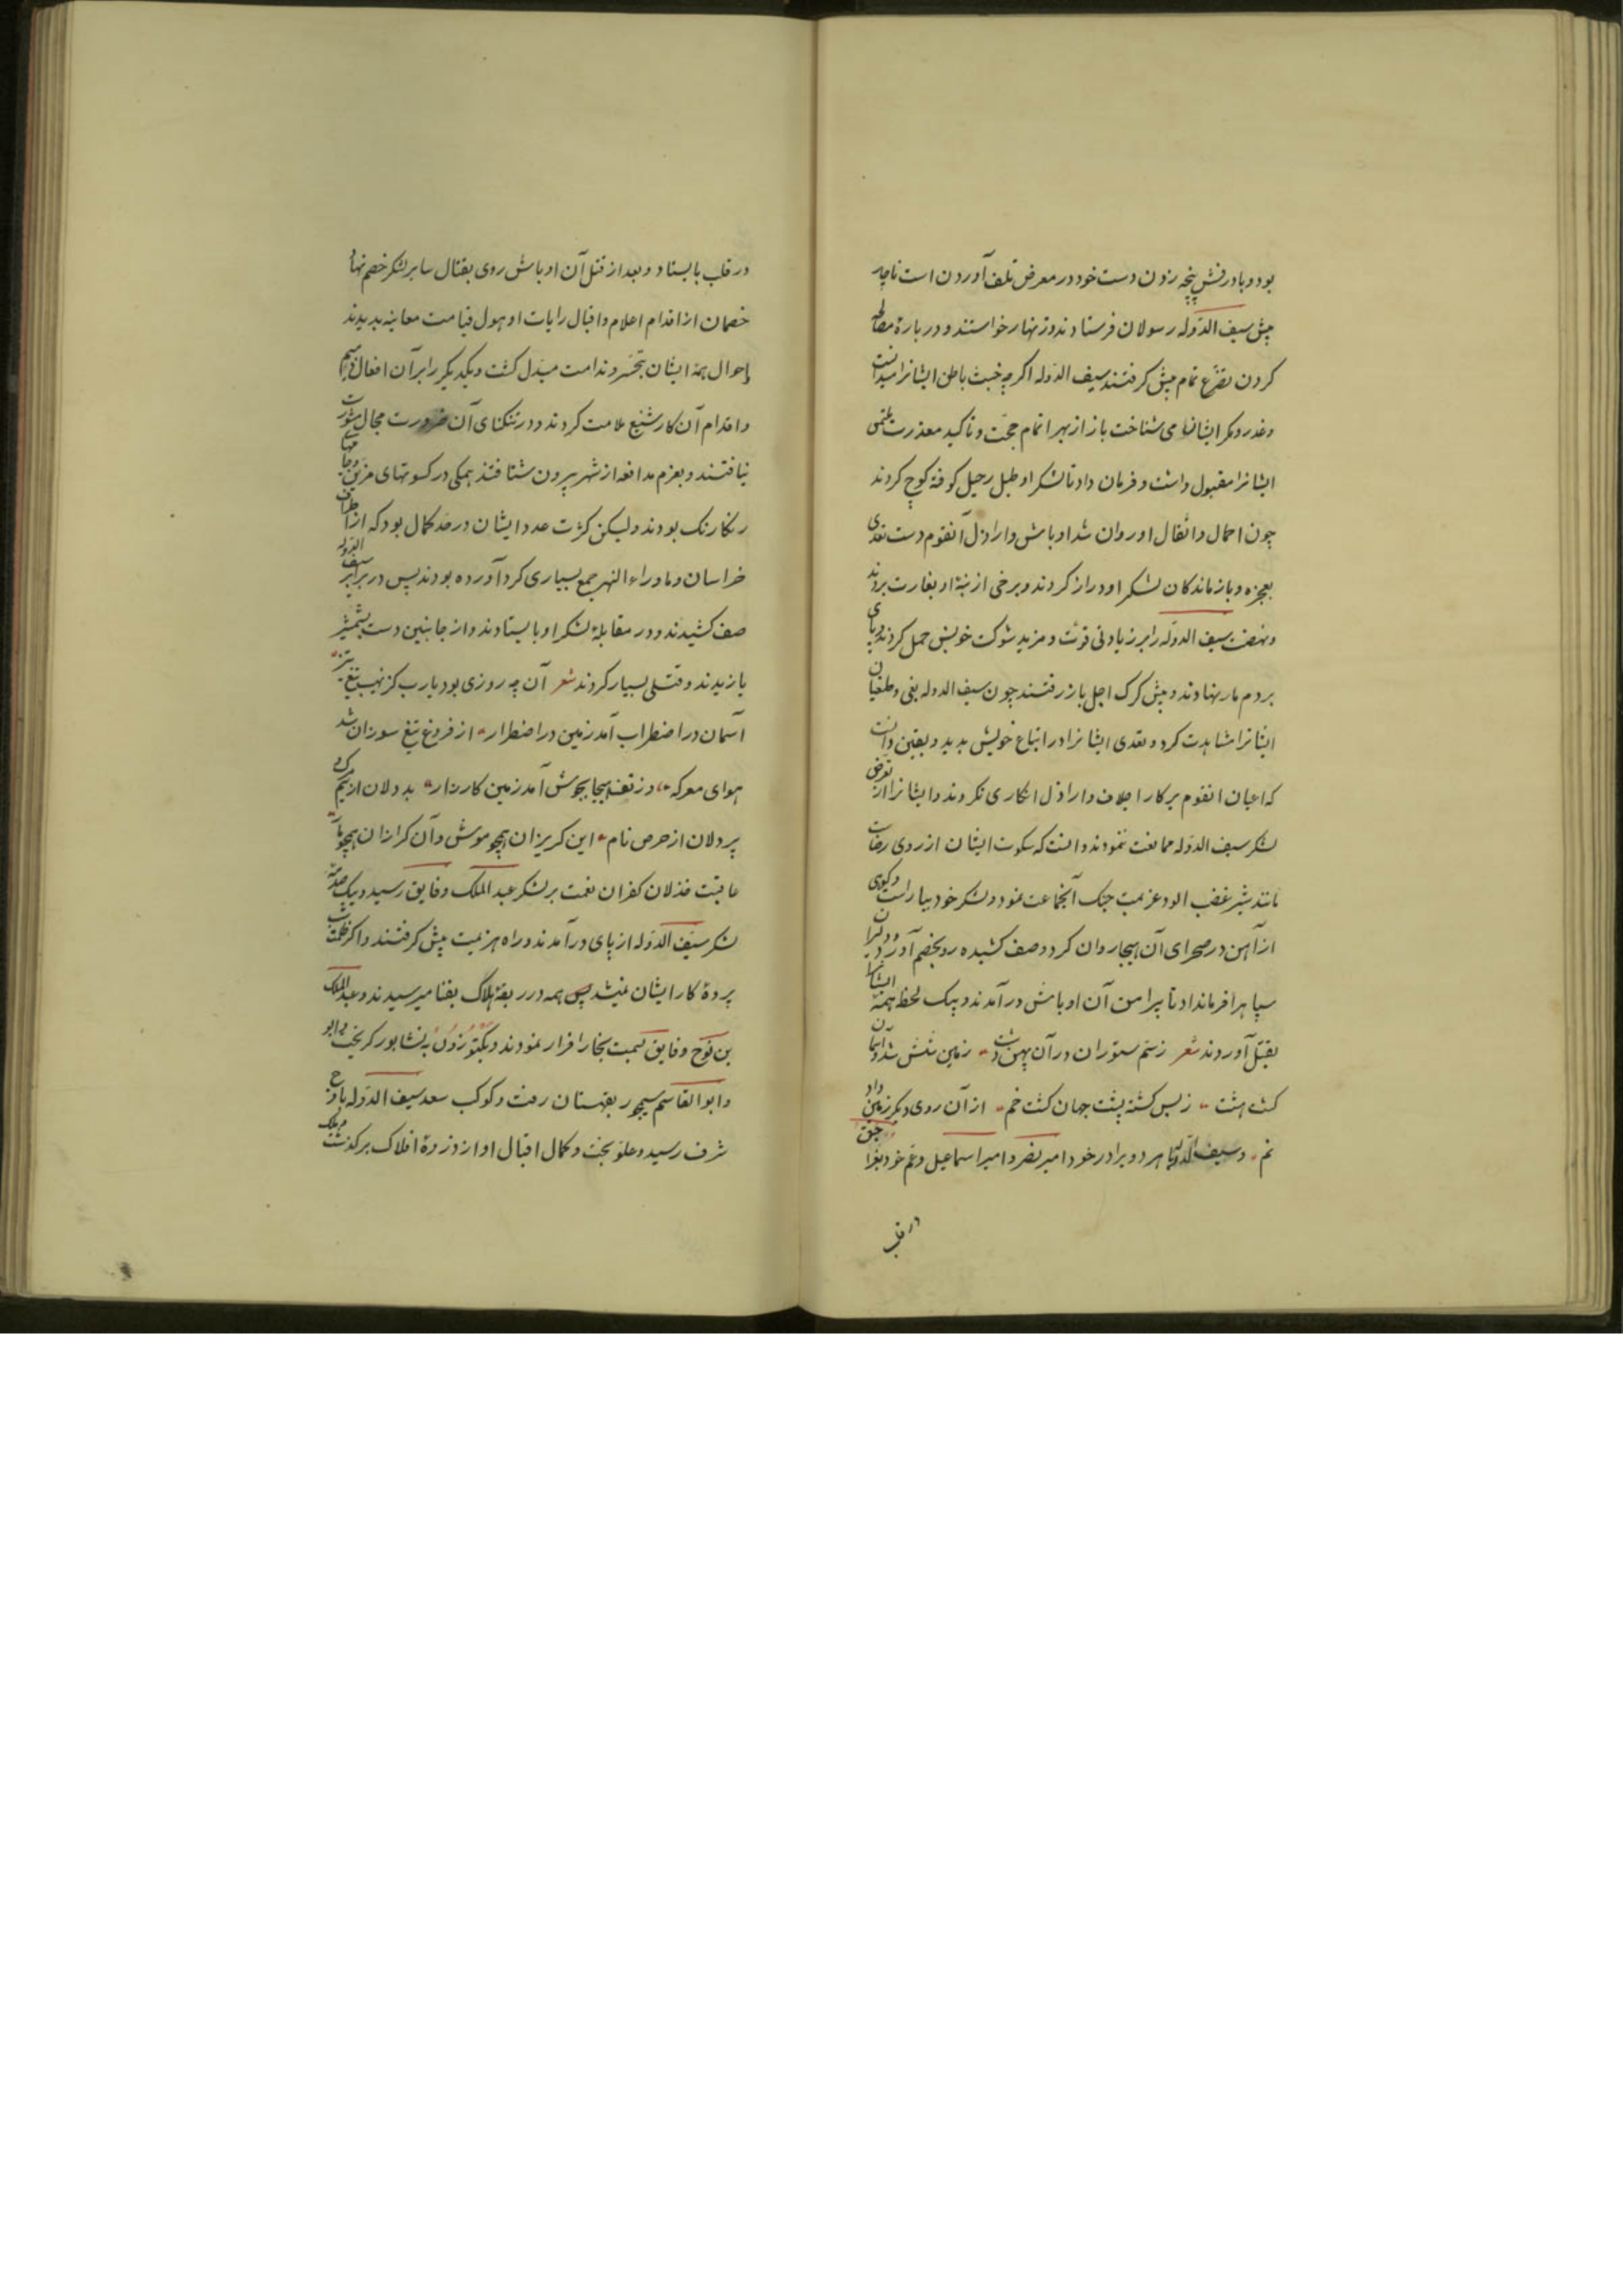 بود و با درفش پنجه زدن دست خود در معرض تلف آوردن است ناچار
پیش سیف الدوله رسولان فرستادند و زنهار خواستند و در باره مصالحه
کردن تضرع تمام پیش کرفتند سیف الدوله اکرچه خبث باطن ایشانرا میدانست
و غدر و مکر ایشانرا می شناخت باز از بهر اتمام حجت و تاکید معذرت ملتمس
ایشانرا مقبول داشت و فرمان داد تا لشکر او طبل رحیل کوفته کوچ کردند
چون احمال و اثقال او روان شد اوباش و اراذل آنقوم دست تعدی
بعجزه و بازماندکان لشکر او دراز کردند و برخی از بنه او بغارت بردند
و نهضت سیف الدوله را بر زیادتی قوت و مزید شوکت خویش حمل کردند و پای
بر دم مار نهادند و پیش کرک اجل باز رفتند چون سیف الدوله بغی و طغیان
ایشانرا مشاهدت کرد و تعدی ایشانرا در اتباع خویش بدید و بیقین دانست
که اعیان انقوم بر کار اجلاف و اراذل انکاری نکردند و ایشانرا از تعرض
لشکر سیف الدوله ممانعت ننمودند دانست که سکوت ایشان از روی رضاست
مانند شیر غضب الود عزیمت جنک آنجماعت نمود و لشکر خود بیاراست و کوهی
از آهن در صحرای آن هیجا روان کرد و صف کشیده رو بخصم آورد و دلیران
سپاه را فرمانداد تا پیرامن آن اوباش در آمدند و بیک لحظه همه ایشانرا
بقتل آوردند شعر ز سم ستوران در آن پهن دشت زمین شش شد و آسمان
کشت هشت ز بس کشته پشت جهان کشت خم از آن روی دیکر زمین داد
نم و سیف الدوله با هر دو برادر خود امیر نصر و امیر اسماعیل و عم خود بغراجق
در قلب
در قلب بایستاد و بعد از قتل آن اوباش روی بقتال سایر لشکر خصم نهاد
خصمان از اقدام اعلام و اقبال رایات او هول قیامت معاینه بدیدند
احوال همه ایشان بتحسر و ندامت مبدل کشت و یکدیکر را بر آن افعال ذمیم
و اقدام آن کار شنیع ملامت کردند و در تنکنای آن ضرورت مجال مشورت
نیافتند و بعزم مدافعه از شهر بیرون شتافتند همکی در کسوتهای مزین و جامهای
رنکارنک بودند ولیکن کثرت عدد ایشان در حد کمال بود که از اطراف
خراسان و ماوراء النهر جمع بسیاری کرد آورده بودند پس در برابر سیف الدوله
صف کشیدند و در مقابله لشکر او بایستادند و از جانبین دست بشمشیر
یازیدند و قتلی بسیار کردند شعر آن چه روزی بود یارب کز نهیب تیغ تیز
آسمان در اضطراب آمد زمین در اضطرار از فروغ تیغ سوزان شد
هوای معرکه وز تف هیجا بجوش آمد زمین کارزار بد دلان از بیم مرک و
پر دلان از حرص نام این کریزان همچو موش و آن کرازان همچو مار
عاقبت خذلان کفران نعمت بر لشکر عبد الملک و فایق رسید و بیک صدمه
لشکر سیف الدوله از پای در آمدند و راه هزیمت پیش کرفتند و اکر ظلمت شب
پرده کار ایشان نمیشد پس همه در ربقه هلاک بفنا میرسیدند و عبد الملک
بن نوح و فایق بسمت بخارا فرار نمودند و بکتوزون به نشابور کریخت
و ابو القاسم سیمجور بقهستان رفت و کوکب سعد سیف الدوله باوج
شرف رسید و علو بخت و کمال اقبال او از ذروه افلاک برکذشت